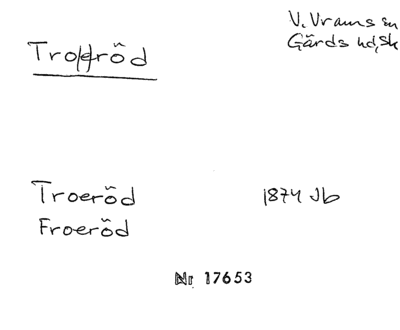 V. Vrams sn
Gärds hd, Sk
Troeröd
Troeröd 1874 Jb
Froeröd
Nr 17653